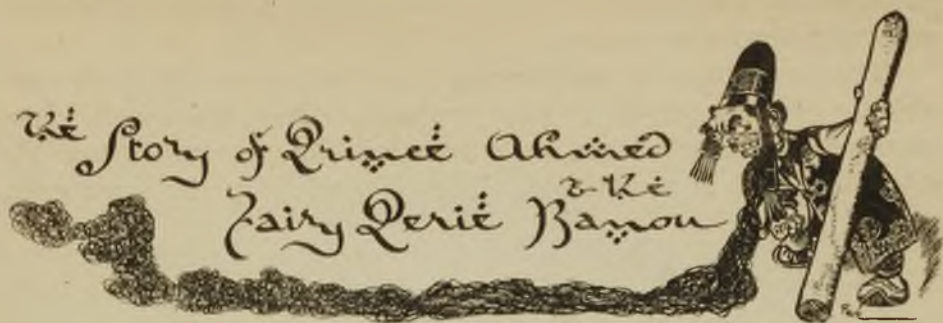 The Story of Prince Ahmed
& the
Fairy Perie Banou